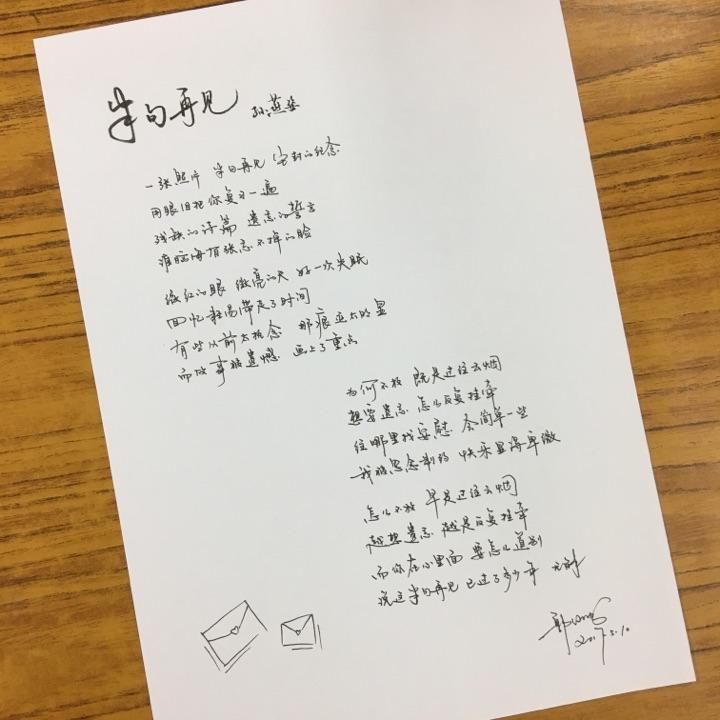 半句再见 孙燕姿
一张照片 半句再见 尘封的纪念
用眼泪把你复习一遍
残缺的诗篇 遗忘的誓言
谁脑海有张忘不掉的脸
微红的眼 微亮的天 好一次失眠
回忆轻易带走了时间
有些从前太执念 那痕迹太明显
而故事被遗憾 画上了重点
为何不放 既是过往云烟
想要遗忘 怎么反复挂牵
往哪里找安慰 会简单一些
我被思念刺的 快乐显得卑微
怎么不放 早是过往云烟
越想遗忘 越是反复挂牵
而你在心里面 要怎么道别
说这半句再见 已过了多少年
2017.5.10